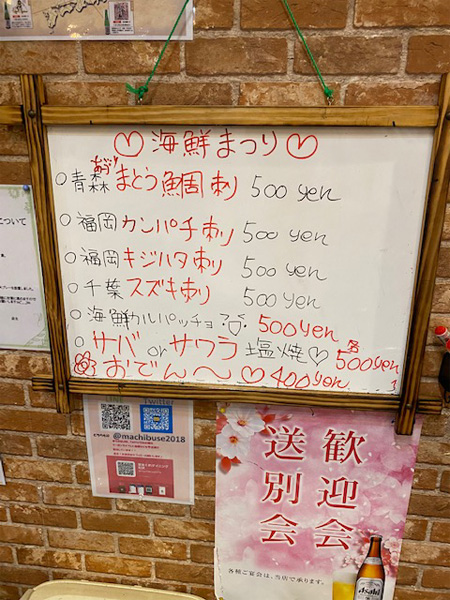 ♡ 海鮮まつり ♡
○青森まとう鯛刺 500 yen
○福岡カンパチ刺 500 yen
○福岡キジハタ刺 500 yen
○千葉スズキ刺 500 yen
○海鮮カルパッチョ 500 yen
○サバ or サワラ塩焼♡ 各500yen
おでん〜♡ 400yen
について
Twitter
@machibuse2018
歓迎会
送別会
各種ご宴会は、当店で承ります。
Asahi